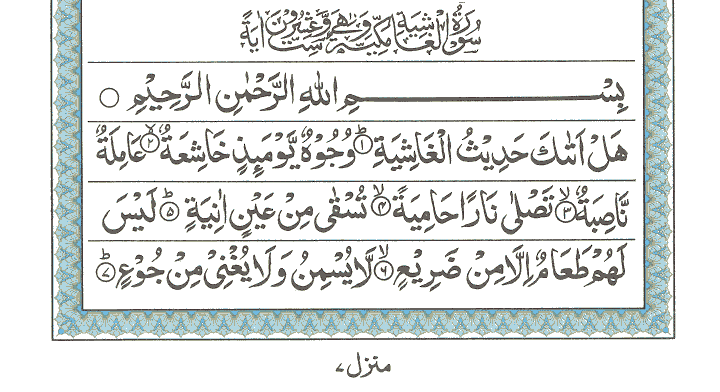 سُوْرَةُ الْغَاشِيَةِ مَكِّيَّةٌ وَّهِيَ سِتٌّ وَّعِشْرُوْنَ اٰيَةً
بِسْمِ اللهِ الرَّحْمٰنِ الرَّحِيْمِ ○
هَلْ اَتٰىكَ حَدِيْثُ الْغَاشِيَةِ ؕ﴿۱﴾ وُجُوْهٌ يَّوْمَىِٕذٍ خَاشِعَةٌ ۙ﴿۲﴾ عَامِلَةٌ
نَّاصِبَةٌ ۙ﴿۳﴾ تَصْلٰى نَارًا حَامِيَةً ۙ﴿۴﴾ تُسْقٰى مِنْ عَيْنٍ اٰنِيَةٍ ؕ﴿۵﴾ لَيْسَ
لَهُمْ طَعَامٌ اِلَّا مِنْ ضَرِيْعٍ ۙ﴿۶﴾ لَّا يُسْمِنُ وَلَا يُغْنِىْ مِنْ جُوْعٍ ؕ﴿۷﴾
منزل ۷